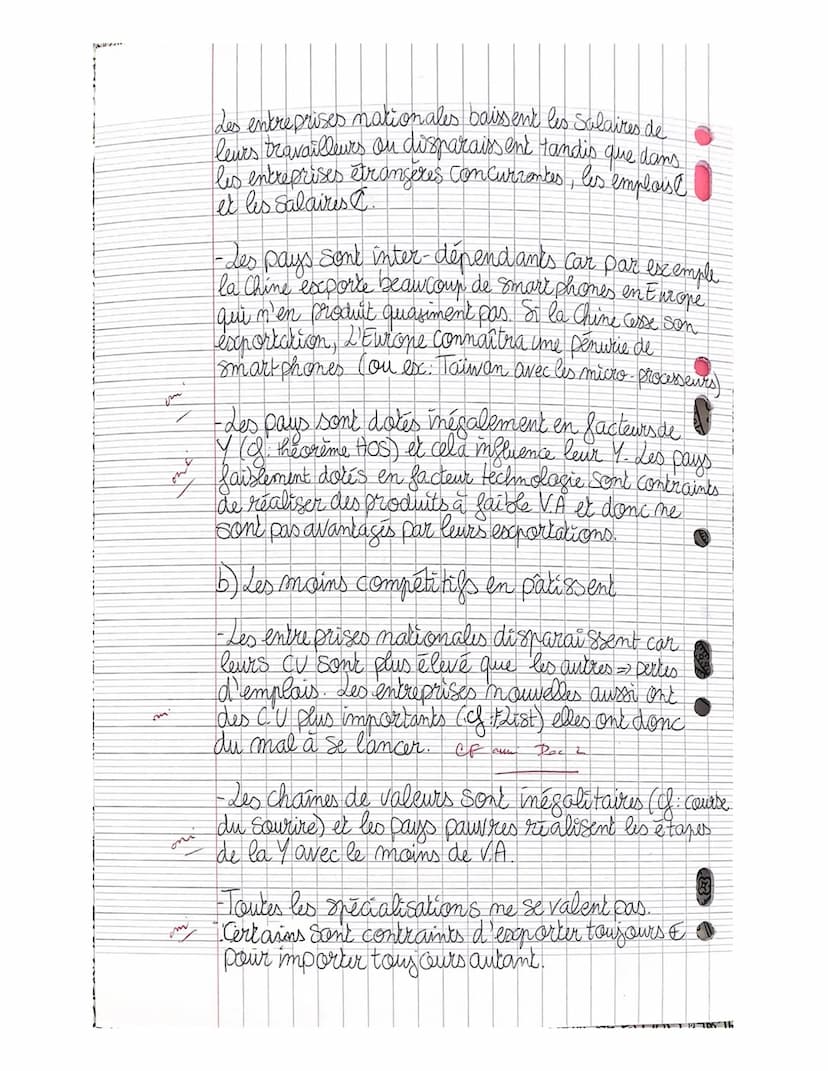 Les entreprises nationales baissent les salaires de
leurs travailleurs ou disparaissent tandis que dans
les entreprises étrangères concurrentes, les emplois
et les salaires
-Les pays sont inter-dépendants car par exemple
la Chine exporte beaucoup de smartphones en Europe
qui n'en produit quasiment pas. Si la Chine cesse son
exportation, L'Europe connaîtra une pénurie de
smartphones (ou ex: Taïwan avec les micro-processeurs)
oui
-Les pays sont dotés inégalement en facteurs de
Y (cf: théorème HOS) et cela influence leur Y. Les pays
oui
faiblement dotés en facteur technologie sont contraints
de réaliser des produits à faible V.A et donc ne
sont pas avantagés par leurs exportations.
b) Les moins compétitifs en pâtissent
-Les entreprises nationales disparaissent car
leurs CU sont plus élevé que les autres => pertes
d'emplois. Les entreprises nouvelles aussi ont
oui
des C.U plus importants (cf: List) elles ont donc
du mal à se lancer. CF aussi Doc 2
-Les chaînes de valeurs sont inégalitaires (cf: courbe
du sourire) et les pays pauvres réalisent les étapes
oui
de la Y avec le moins de V.A.
-Toutes les spécialisations ne se valent pas.
oui
Certains sont contraints d'exporter toujours
pour importer toujours autant.